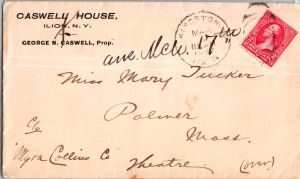 CASWELL HOUSE,
ILION, N. Y.
GEORGE N. CASWELL, Prop.
KINGSTON
MAR
Miss Mary Tucker
Palmer
Mass.
c/o
"Myra Collins Co" Theatre
(over)